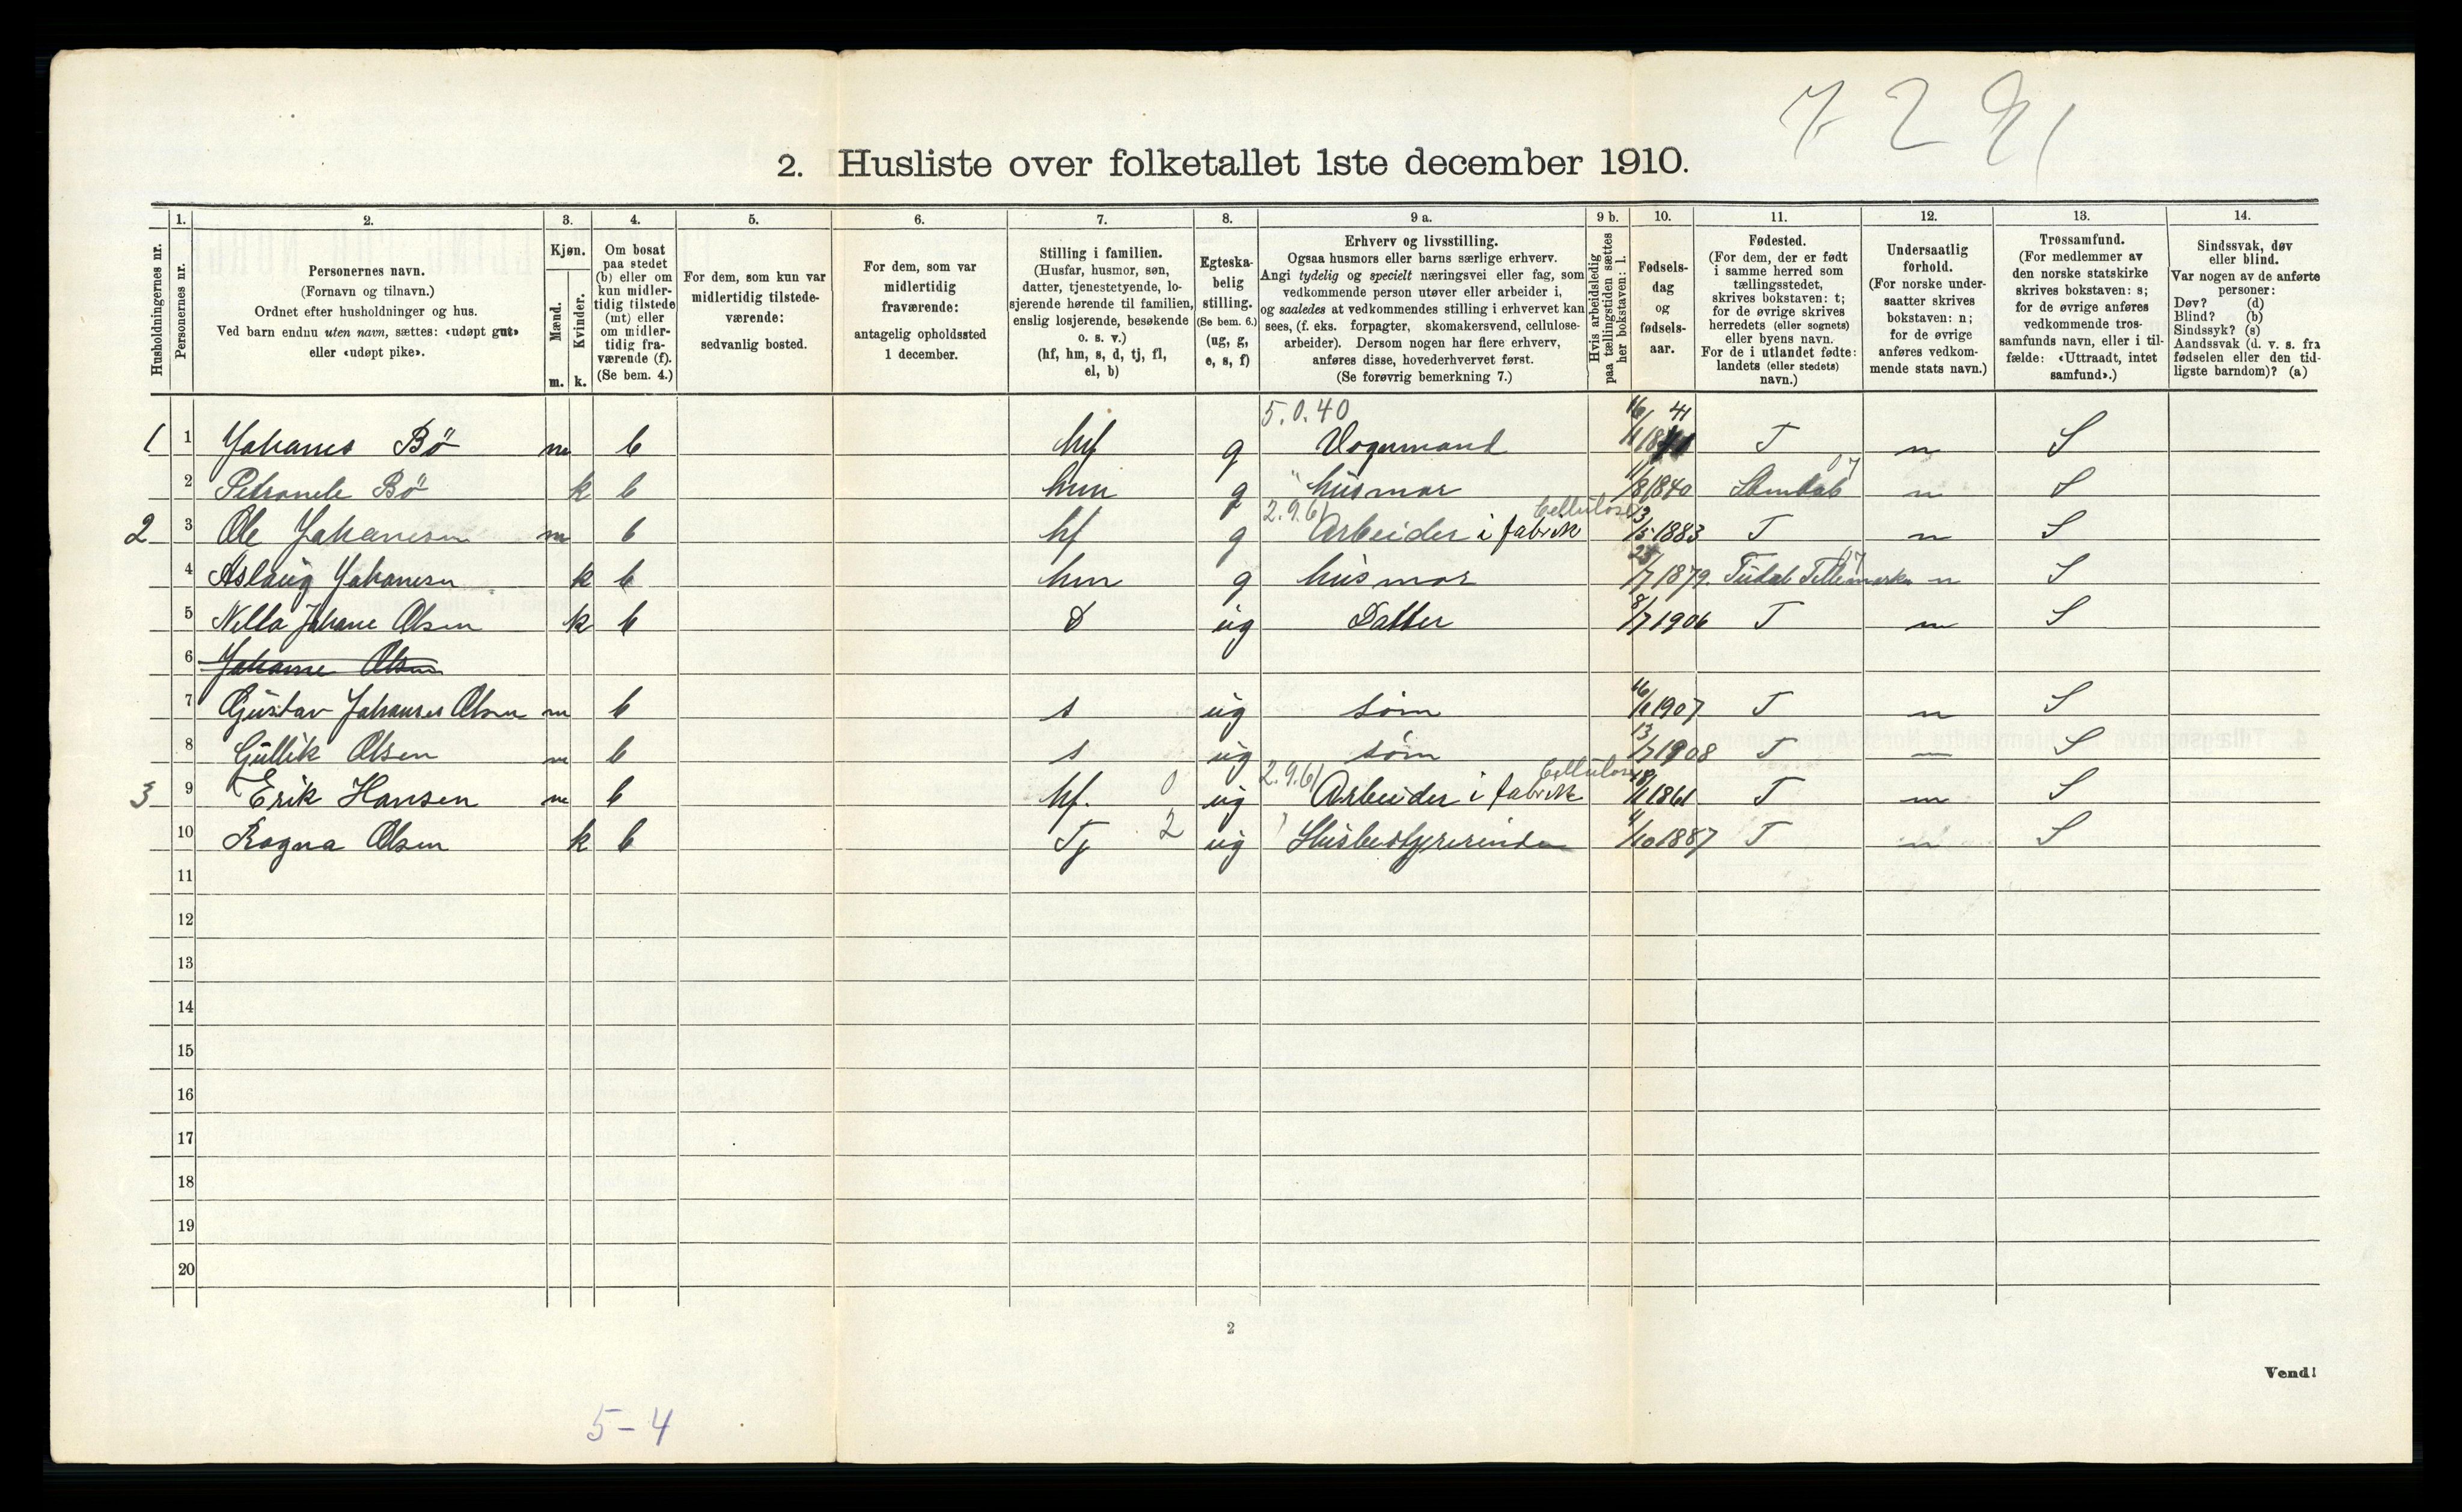 7291
2. Husliste over folketallet 1ste december 1910.
Husholdningernes nr.
1. Personernes nr.
2. Personernes navn.
(Fornavn og tilnavn.)
Ordnet efter husholdninger og hus.
Ved barn endnu uten navn, sættes: «udøpt gut»
eller «udøpt pike».
3. Kjøn.
Mænd. m.
Kvinder. k.
4. Om bosat
paa stedet
(b) eller om
kun midler-
tidig tilstede
(mt) eller
om midler-
tidig fra-
værende (f).
(Se bem. 4.)
5. For dem, som kun var
midlertidig tilstede-
værende:
sedvanlig bosted.
6. For dem, som var
midlertidig
fraværende:
antagelig opholdssted
1 december.
7. Stilling i familien.
(Husfar, husmor, søn,
datter, tjenestetyende, lo-
sjerende hørende til familien,
enslig losjerende, besøkende
o. s. v.)
(hf, hm, s, d, tj, fl,
el, b)
8. Egteska-
belig
stilling.
(Se bem. 6.)
(ug, g,
e, s, f)
9 a. Erhverv og livsstilling.
Ogsaa husmors eller barns særlige erhverv.
Angi tydelig og specielt næringsvei eller fag, som
vedkommende person utøver eller arbeider i,
og saaledes at vedkommendes stilling i erhvervet kan
sees, (f. eks. forpagter, skomakersvend, cellulose-
arbeider). Dersom nogen har flere erhverv,
anføres disse, hovederhvervet først.
(Se forøvrig bemerkning 7.)
9 b. Hvis arbeidsledig
paa tællingstiden sættes
her bokstaven: l.
10. Fødsels-
dag
og
fødsels-
aar.
11. Fødested.
(For dem, der er født
i samme herred som
tællingsstedet,
skrives bokstaven: t;
for de øvrige skrives
herredets (eller sognets)
eller byens navn.
For de i utlandet fødte:
landets (eller stedets)
navn.)
12. Undersaatlig
forhold.
(For norske under-
saatter skrives
bokstaven: n;
for de øvrige
anføres vedkom-
mende stats navn.)
13. Trossamfund.
(For medlemmer av
den norske statskirke
skrives bokstaven: s;
for de øvrige anføres
vedkommende tros-
samfunds navn, eller i til-
fælde: «Uttraadt, intet
samfund».)
14. Sindssvak, døv
eller blind.
Var nogen av de anførte
personer:
Døv? (d)
Blind? (b)
Sindssyk? (s)
Aandssvak (d. v. s. fra
fødselen eller den tid-
ligste barndom)? (a)
5.0.40
1 1 Johanes Bö m b hf g Vognmand 16/11 1841 T n S
2 Petronele Bö k b hm g husmor 11/8 1840 07 n S
2.9.61 Cellulose
2 3 Ole Johanesn m b hf g Arbeider i fabrik 13/5 1883 T n S
4 Aslaug Johanesn k b hm g husmor 25/7 1879. Tudal Tellemarken 07 n S
5 Nella Johane Olsen k b D ug Datter 8/7 1906 T n S
6 Johanne Olsen
7 Gustav Johanes Olsen m b s ug söm 16/11 1907 T n S
8 Gullik Olsen m b s ug söm 13/7 1908 T n S
2.9.61 Cellulose
3 9 Erik Hansen m b hf. 0 ug Arbeider i fabrik 18/11 1861 T n S
10 Ragna Olsen k b Tj 2 ug Husbestyrerinde 4/10 1887 T n S
11
12
13
14
15
16
17
18
19
20
2
Vend!
5-4